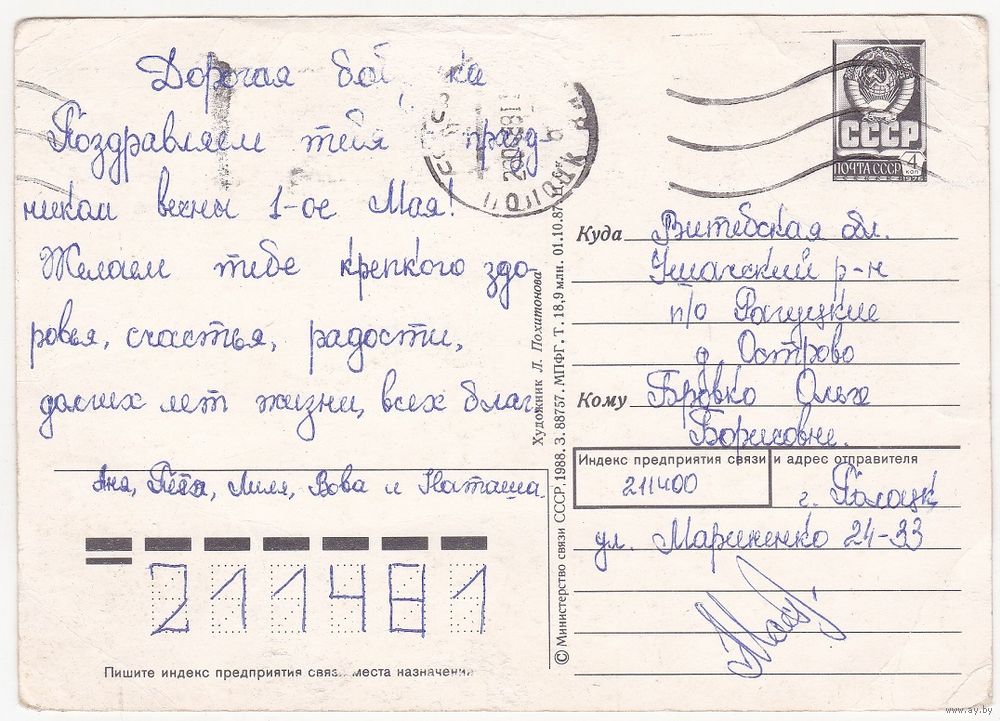 Дорогая
Поздравляем тебя празд-
никам весны 1-ое Мая!
Желаем тебе крепкого здо-
ровья, счастья, радости,
долгих лет жизни, всех благ.
Аня, Петя, Лиля, Вова и Наташа.
211481
Пишите индекс предприятия связи места назначения
Художник Л. Похитонова
© Министерство связи СССР. 1988. З. 88757. МПФГ. Т. 18,9 млн. 01.10.87
Полоцк
СССР
ПОЧТА СССР
4 коп
Куда Витебская обл.
Ушачский р-н
п/о Рагуцкие
д. Острово
Кому Бровко Ольге
Борисовне.
Индекс предприятия связи и адрес отправителя
211400
г. Полоцк,
ул. Мариненко 24-33
www.ay.by